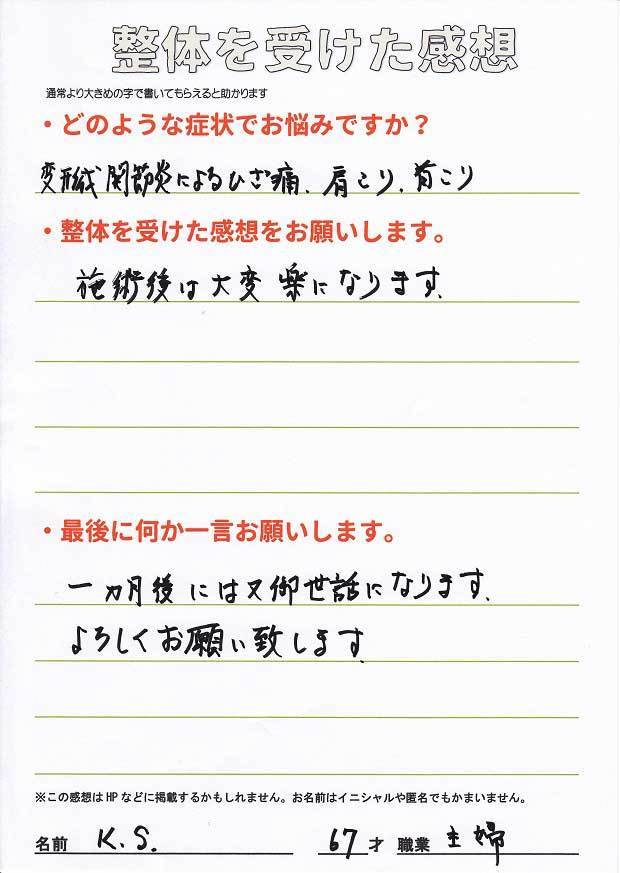 整体を受けた感想
通常より大きめの字で書いてもらえると助かります
・どのような症状でお悩みですか？
変形性関節炎によるひざ痛、肩こり、首こり
・整体を受けた感想をお願いします。
施術後は大変楽になります。
・最後に何か一言お願いします。
一ヵ月後には又御世話になります。
よろしくお願い致します。
※この感想はHPなどに掲載するかもしれません。お名前はイニシャルや匿名でもかまいません。
名前 K.S. 67才 職業 主婦